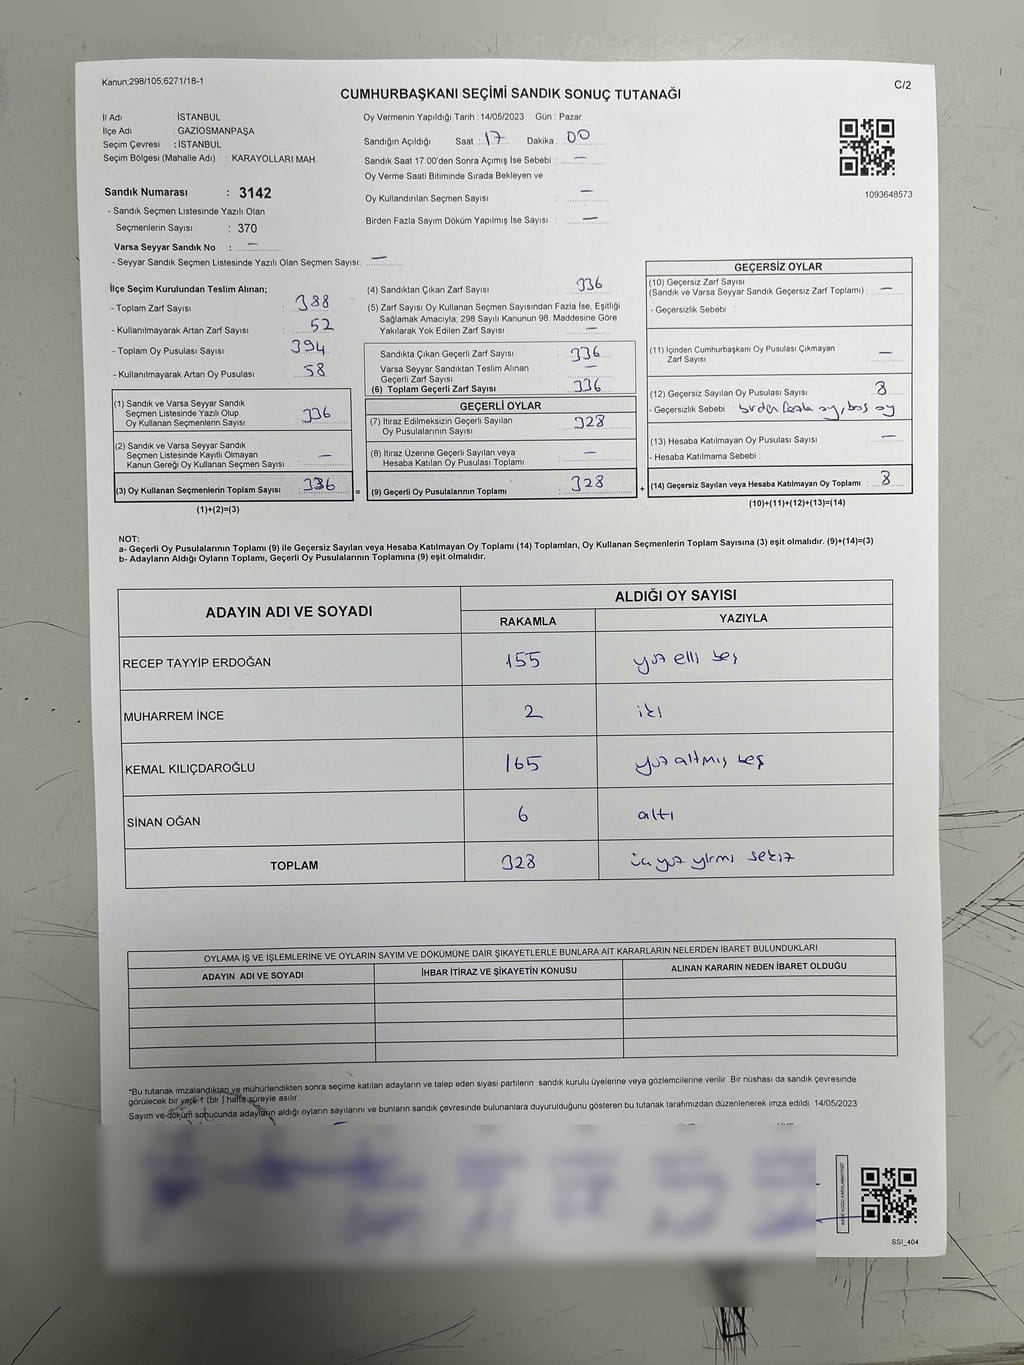 Kanun,298/105,6271/18-1
C/2
CUMHURBAŞKANI SEÇİMİ SANDIK SONUÇ TUTANAĞI
İl Adı : İSTANBUL
İlçe Adı : GAZİOSMANPAŞA
Seçim Çevresi : İSTANBUL
Seçim Bölgesi (Mahalle Adı) : KARAYOLLARI MAH.
Sandık Numarası : 3142
- Sandık Seçmen Listesinde Yazılı Olan
Seçmenlerin Sayısı : 370
Varsa Seyyar Sandık No : —
- Seyyar Sandık Seçmen Listesinde Yazılı Olan Seçmen Sayısı: —
Oy Vermenin Yapıldığı Tarih : 14/05/2023 Gün : Pazar
Sandığın Açıldığı Saat : 17 Dakika : 00
Sandık Saat 17:00'den Sonra Açımış İse Sebebi : —
Oy Verme Saati Bitiminde Sırada Bekleyen ve
Oy Kullandırılan Seçmen Sayısı : —
Birden Fazla Sayım Döküm Yapılmış İse Sayısı : —
1093648573
İlçe Seçim Kurulundan Teslim Alınan;
- Toplam Zarf Sayısı : 388
- Kullanılmayarak Artan Zarf Sayısı : 52
- Toplam Oy Pusulası Sayısı : 394
- Kullanılmayarak Artan Oy Pusulası : 58
(1) Sandık ve Varsa Seyyar Sandık
Seçmen Listesinde Yazılı Olup
Oy Kullanan Seçmenlerin Sayısı : 336
(2) Sandık ve Varsa Seyyar Sandık
Seçmen Listesinde Kayıtlı Olmayan
Kanun Gereği Oy Kullanan Seçmen Sayısı : —
(3) Oy Kullanan Seçmenlerin Toplam Sayısı : 336
(1)+(2)=(3)
(4) Sandıktan Çıkan Zarf Sayısı : 336
(5) Zarf Sayısı Oy Kullanan Seçmen Sayısından Fazla İse, Eşitliği
Sağlamak Amacıyla, 298 Sayılı Kanunun 98. Maddesine Göre
Yakılarak Yok Edilen Zarf Sayısı : —
Sandıkta Çıkan Geçerli Zarf Sayısı : 336
Varsa Seyyar Sandıktan Teslim Alınan
Geçerli Zarf Sayısı : —
(6) Toplam Geçerli Zarf Sayısı : 336
GEÇERLİ OYLAR
(7) İtiraz Edilmeksizin Geçerli Sayılan
Oy Pusulalarının Sayısı : 328
(8) İtiraz Üzerine Geçerli Sayılan veya
Hesaba Katılan Oy Pusulası Toplamı : —
= (9) Geçerli Oy Pusulalarının Toplamı : 328
GEÇERSİZ OYLAR
(10) Geçersiz Zarf Sayısı
(Sandık ve Varsa Seyyar Sandık Geçersiz Zarf Toplamı) : —
- Geçersizlik Sebebi :
(11) İçinden Cumhurbaşkanı Oy Pusulası Çıkmayan
Zarf Sayısı : —
(12) Geçersiz Sayılan Oy Pusulası Sayısı : 8
- Geçersizlik Sebebi : birden fazla oy, boş oy
(13) Hesaba Katılmayan Oy Pusulası Sayısı : —
- Hesaba Katılmama Sebebi :
+ (14) Geçersiz Sayılan veya Hesaba Katılmayan Oy Toplamı : 8
(10)+(11)+(12)+(13)=(14)
NOT:
a- Geçerli Oy Pusulalarının Toplamı (9) ile Geçersiz Sayılan veya Hesaba Katılmayan Oy Toplamı (14) Toplamları, Oy Kullanan Seçmenlerin Toplam Sayısına (3) eşit olmalıdır. (9)+(14)=(3)
b- Adayların Aldığı Oyların Toplamı, Geçerli Oy Pusulalarının Toplamına (9) eşit olmalıdır.
ADAYIN ADI VE SOYADI
ALDIĞI OY SAYISI
RAKAMLA YAZIYLA
RECEP TAYYİP ERDOĞAN 155 yuz elli beş
MUHARREM İNCE 2 iki
KEMAL KILIÇDAROĞLU 165 yuz altmış beş
SİNAN OĞAN 6 altı
TOPLAM 328 üç yuz yirmi sekiz
OYLAMA İŞ VE İŞLEMLERİNE VE OYLARIN SAYIM VE DÖKÜMÜNE DAİR ŞİKAYETLERLE BUNLARA AİT KARARLARIN NELERDEN İBARET BULUNDUKLARI
ADAYIN ADI VE SOYADI İHBAR İTİRAZ VE ŞİKAYETİN KONUSU ALINAN KARARIN NEDEN İBARET OLDUĞU
*Bu tutanak imzalandıktan ve mühürlendikten sonra seçime katılan adayların ve talep eden siyasi partilerin sandık kurulu üyelerine veya gözlemcilerine verilir. Bir nüshası da sandık çevresinde
görülecek bir yere 1 (bir ) hafta süreyle asılır.
Sayım ve döküm sonucunda adayların aldığı oyların sayılarını ve bunların sandık çevresinde bulunanlara duyurulduğunu gösteren bu tutanak tarafımızdan düzenlenerek imza edildi. 14/05/2023
SSI_404